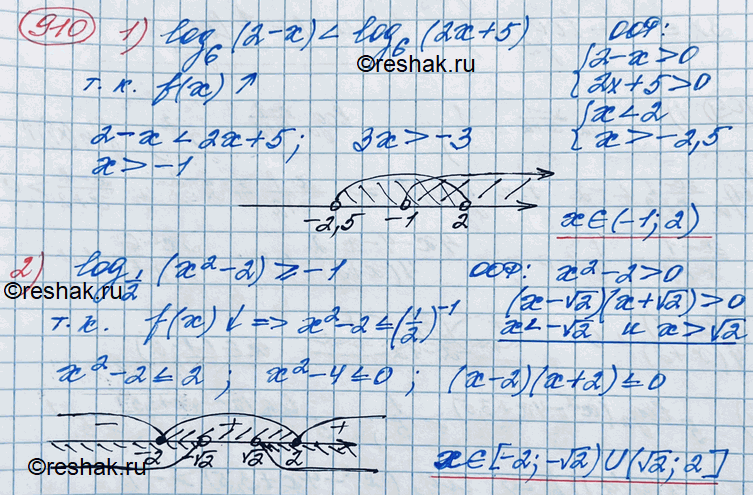 910 1) log₆ (2-x) < log₆ (2x+5) ООФ:
©reshak.ru
т. к. f(x) ↑ {2-x>0
2x+5>0
2-x < 2x+5; 3x > -3 {x<2
x > -1 x > -2,5
-2,5 -1 2
x∈(-1; 2)
2) log_{1/2} (x²-2) ≥ -1 ООФ: x²-2>0
©reshak.ru (x-√2)(x+√2)>0
т. к. f(x) ↓ => x²-2 ≤ (1/2)⁻¹ x<-√2 и x>√2
x²-2 ≤ 2; x²-4 ≤ 0; (x-2)(x+2) ≤ 0
- + +
-2 -√2 √2 2
x∈[-2; -√2) U (√2; 2]
©reshak.ru